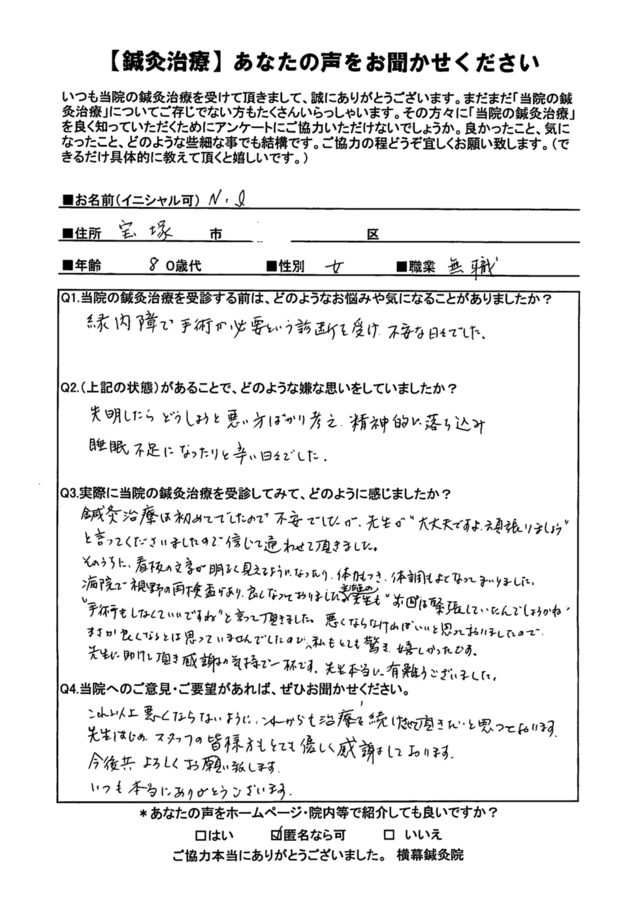 【鍼灸治療】あなたの声をお聞かせください
いつも当院の鍼灸治療を受けて頂きまして、誠にありがとうございます。まだまだ「当院の鍼
灸治療」についてご存じでない方もたくさんいらっしゃいます。その方々に「当院の鍼灸治療」
を良く知っていただくためにアンケートにご協力いただけないでしょうか。良かったこと、気に
なったこと、どのような些細な事でも結構です。ご協力の程どうぞ宜しくお願い致します。（で
きるだけ具体的に教えて頂くと嬉しいです。）
■お名前（イニシャル可） N.I
■住所 宝塚 市 区
■年齢 80歳代 ■性別 女 ■職業 無職
Q1.当院の鍼灸治療を受診する前は、どのようなお悩みや気になることがありましたか？
緑内障で手術が必要という診断を受け、不安な日々でした。
Q2.（上記の状態）があることで、どのような嫌な思いをしていましたか？
失明したらどうしようと悪い方ばかり考え、精神的に落ち込み
睡眠不足になったりと辛い日々でした。
Q3.実際に当院の鍼灸治療を受診してみて、どのように感じましたか？
鍼灸治療は初めてでしたので不安でしたが、先生が"大丈夫ですよ、頑張りましょう"
と言ってくださいましたので信じて通わせて頂きました。
そのうちに、看板の文字が明るく見えてるようになったり、体力もつき、体調もよくなってまいりました。
病院で視野の再検査があり、良くなっておりました。先生も"前回は緊張していたんでしょうかね
"手術もしなくていいですね"と言って頂きました。悪くならなければいいと思っておりましたので、
まさか良くなるとは思っていませんでしたので、私もとても驚き、嬉しかったです。
先生に助けて頂き感謝の気持で一杯です。先生本当に有難うございました。
Q4.当院へのご意見・ご要望があれば、ぜひお聞かせください。
これ以上悪くならないように、これからも治療を続けて頂きたいと思っております。
先生はじめ、スタッフの皆様方もとても優しく感謝しております。
今後共よろしくお願い致します。
いつも本当にありがとうございます。
＊あなたの声をホームページ・院内等で紹介しても良いですか？
□はい ☑匿名なら可 □ いいえ
ご協力本当にありがとうございました。 横幕鍼灸院